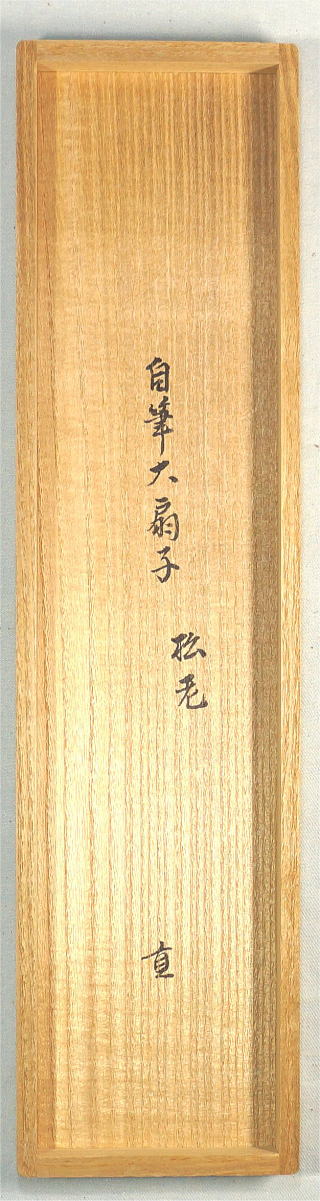 自筆大扇子
松老
直